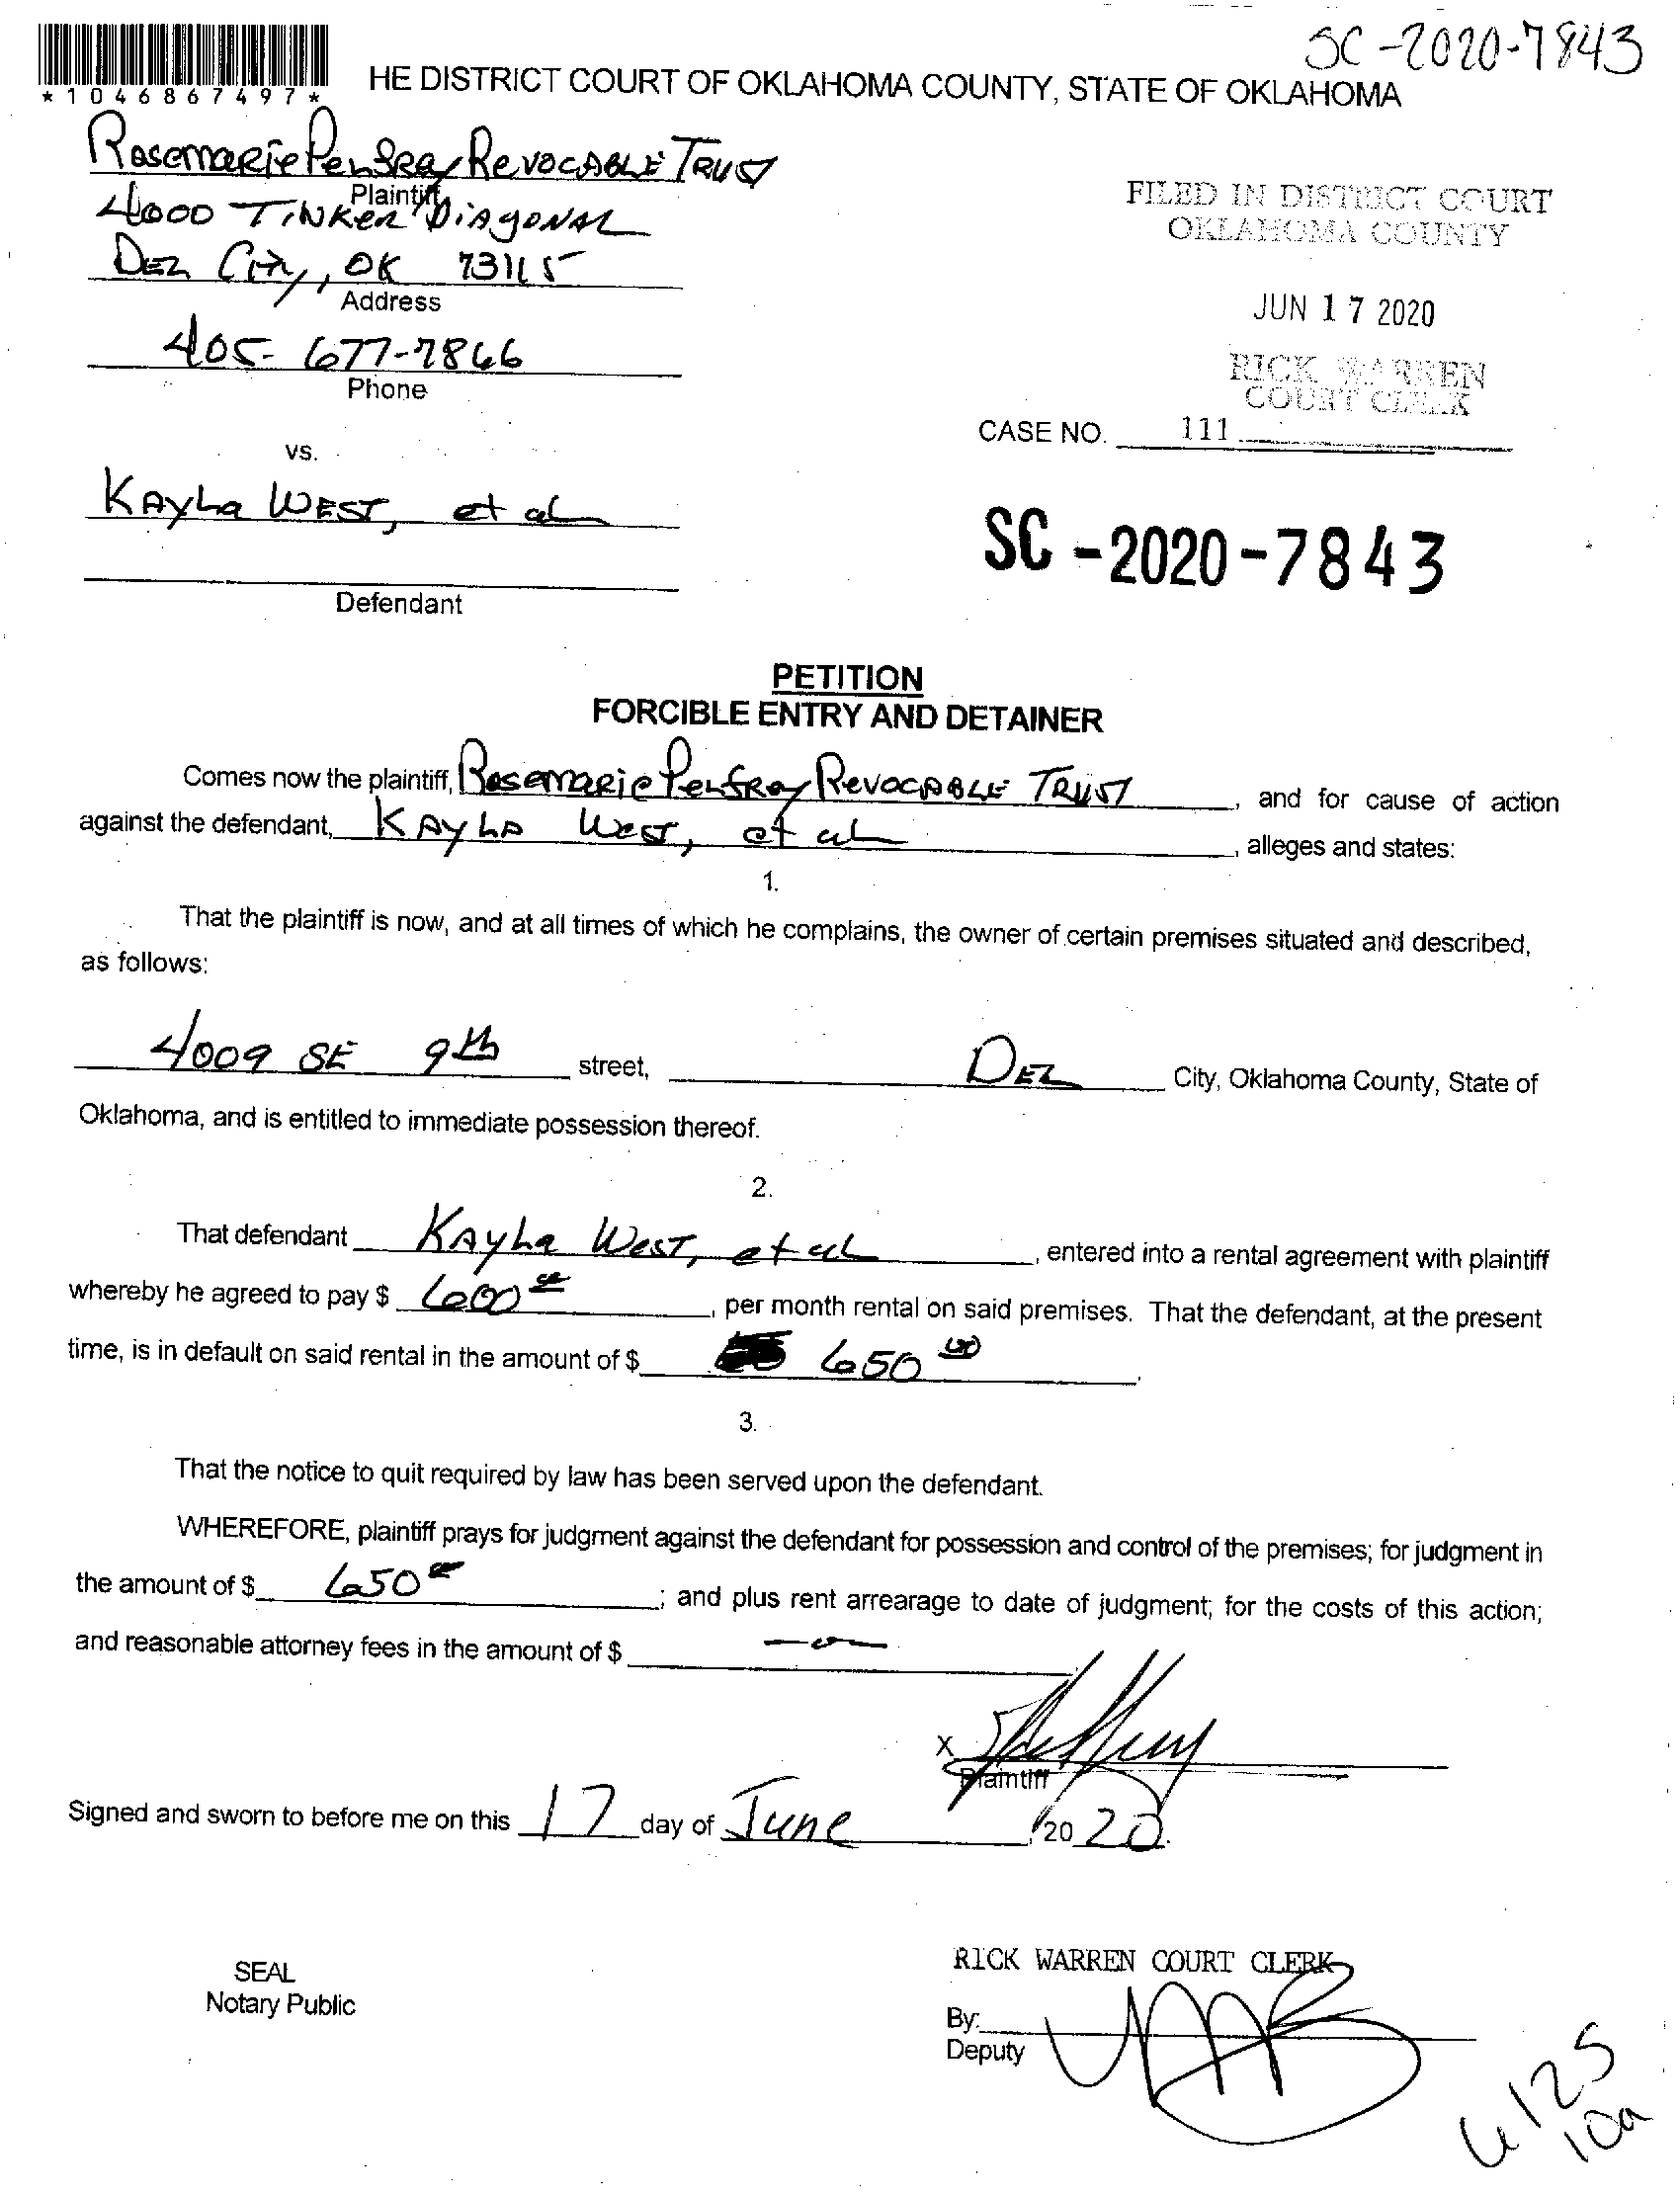 SC-2020-7843
*1046867497*
HE DISTRICT COURT OF OKLAHOMA COUNTY, STATE OF OKLAHOMA
Rosemarie Penfray Revocable Trust
Plaintiff
4000 Tinker Diagonal
Del City, OK 73115
Address
405-677-7866
Phone
FILED IN DISTRICT COURT
OKLAHOMA COUNTY
JUN 17 2020
RICK WARREN
COURT CLERK
CASE NO. 111
vs.
Kayla West, et al
Defendant
SC-2020-7843
PETITION
FORCIBLE ENTRY AND DETAINER
Comes now the plaintiff, Rosemarie Penfray Revocable Trust, and for cause of action
against the defendant, Kayla West, et al, alleges and states:
1.
That the plaintiff is now, and at all times of which he complains, the owner of certain premises situated and described,
as follows:
4009 SE 9th street, Del City, Oklahoma County, State of
Oklahoma, and is entitled to immediate possession thereof.
2.
That defendant Kayla West, et al, entered into a rental agreement with plaintiff
whereby he agreed to pay $ 600 00, per month rental on said premises. That the defendant, at the present
time, is in default on said rental in the amount of $ 650 00.
3.
That the notice to quit required by law has been served upon the defendant.
WHEREFORE, plaintiff prays for judgment against the defendant for possession and control of the premises; for judgment in
the amount of $ 650 00; and plus rent arrearage to date of judgment; for the costs of this action;
and reasonable attorney fees in the amount of $ —0—
X
Plaintiff
Signed and sworn to before me on this 17 day of June, 2020.
SEAL
Notary Public
RICK WARREN COURT CLERK
By:
Deputy
6/25
10a